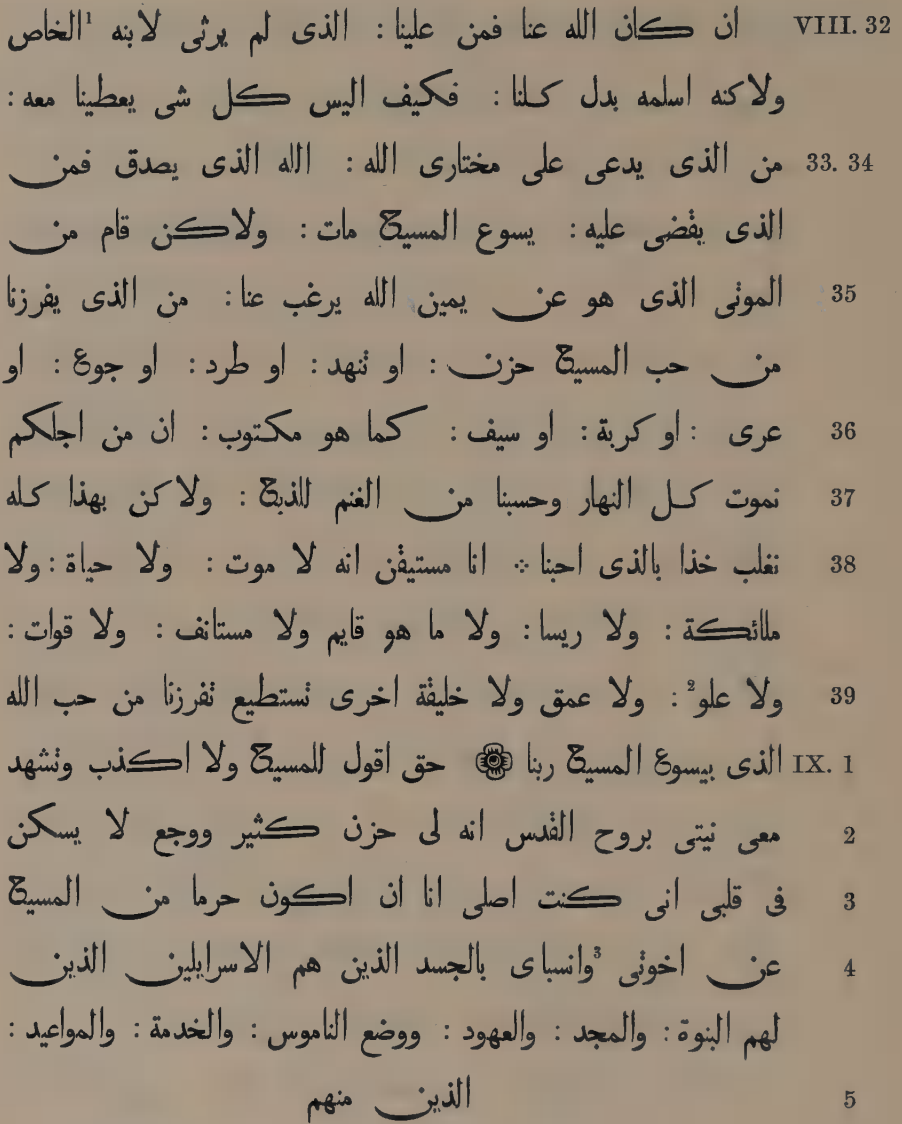 VIII. 32 ان كان الله عنا فمن علينا : الذى لم يرثى لابنه ¹الخاص
ولاكنه اسلمه بدل كلنا : فكيف اليس كل شى يعطينا معه :
33. 34 من الذى يدعى على مختارى الله : الله الذى يصدق فمن
الذى يقضى عليه : يسوع المسيح مات : ولاكن قام من
35 الموتى الذى هو عن يمين الله يرغب عنا : من الذى يفرزنا
من حب المسيح حزن : او تنهد : او طرد : او جوع : او
36 عرى : او كربة : او سيف : كما هو مكتوب : ان من اجلكم
37 نموت كل النهار وحسبنا من الغنم للذبح : ولاكن بهذا كله
38 نغلب خذا بالذى احبنا ܀ انا مستيقن انه لا موت : ولا حياة : ولا
ملائكة : ولا ريسا : ولا ما هو قايم ولا مستانف : ولا قوات :
39 ولا علو² : ولا عمق ولا خليقة اخرى تستطيع تفرزنا من حب الله
IX. 1 الذى بيسوع المسيح ربنا ۞ حق اقول للمسيح ولا اكذب وتشهد
2 معى نيتى بروح القدس انه لى حزن كثير ووجع لا يسكن
3 فى قلبى انى كنت اصلى انا ان اكون حرما من المسيح
4 عن اخوتى ³وانسباى بالجسد الذين هم الاسرايلين الذين
لهم البنوة : والمجد : والعهود : ووضع الناموس : والخدمة : والمواعيد :
5 الذين منهم